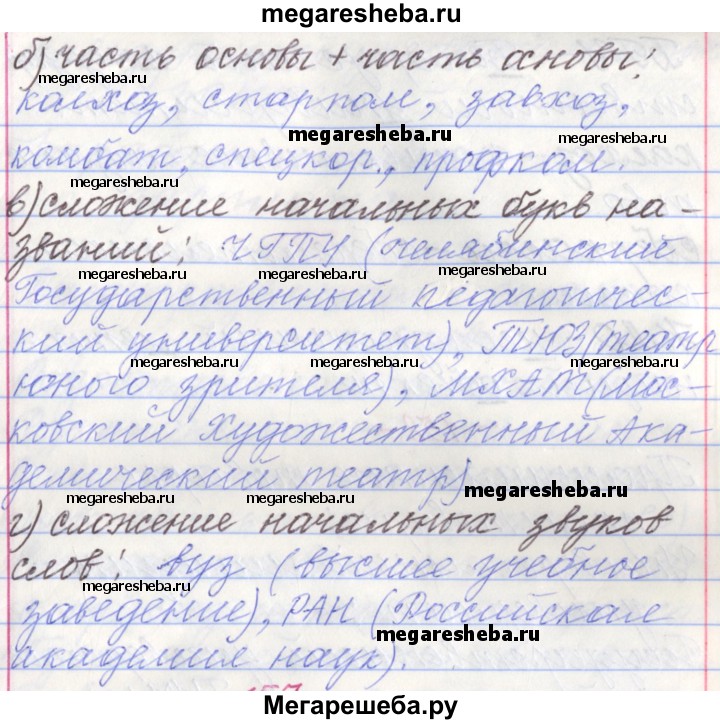 megaresheba.ru
б) часть основы + часть основы:
megaresheba.ru
колхоз, старпом, завхоз,
megaresheba.ru
комбат, спецкор., профком.
megaresheba.ru
в) сложение начальных букв на-
званий: ЧГПУ (Челябинский
megaresheba.ru megaresheba.ru
Государственный педагогичес-
кий университет), ТЮЗ (театр
megaresheba.ru megaresheba.ru
юного зрителя), МХАТ (Мос-
ковский Художественный Ака-
демический театр)
megaresheba.ru megaresheba.ru megaresheba.ru
г) сложение начальных звуков
слов: вуз (высшее учебное
megaresheba.ru
заведение), РАН (Российская
megaresheba.ru
академия наук).
Мегарешеба.ру